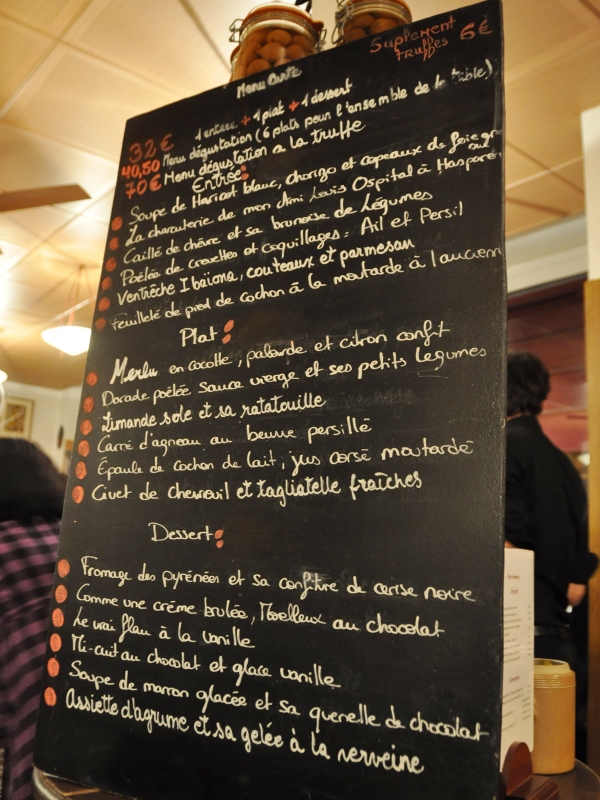 Suplement truffes 6€
Menu Carte
32€ 1 entrée + 1 plat + 1 dessert
40,50 Menu dégustation (6 plats pour l'ensemble de la table)
70€ Menu dégustation a la truffe
Entrée:
Soupe de Haricot blanc, chorizo et copeaux de foie gra
La charcuterie de mon Ami Louis Ospital à Hasparen
Caillé de chèvre et sa brunoise de Légumes
Poêlée de crevettes et coquillages: Ail et Persil
Ventrêche Ibaïona, couteaux et parmesan
Feuilleté de pied de cochon à la moutarde à l'ancienn
Plat:
Merlu en cocotte, palourde et citron confit
Dorade poêlée sauce vierge et ses petits Légumes
Limande sole et sa ratatouille
Carré d'agneau au beurre persillé
Épaule de Cochon de Lait, jus corsé moutardé
Civet de chevreuil et tagliatelle fraîches
Dessert:
Fromage des pyrénées et sa confiture de cerise noire
Comme une crème brulée, Moelleux au chocolat
Le vrai flan à la vanille
Mi-cuit au chocolat et glace vanille
Soupe de marron glacée et sa quenelle de chocolat
Assiette d'agrume et sa gelée à la verveine